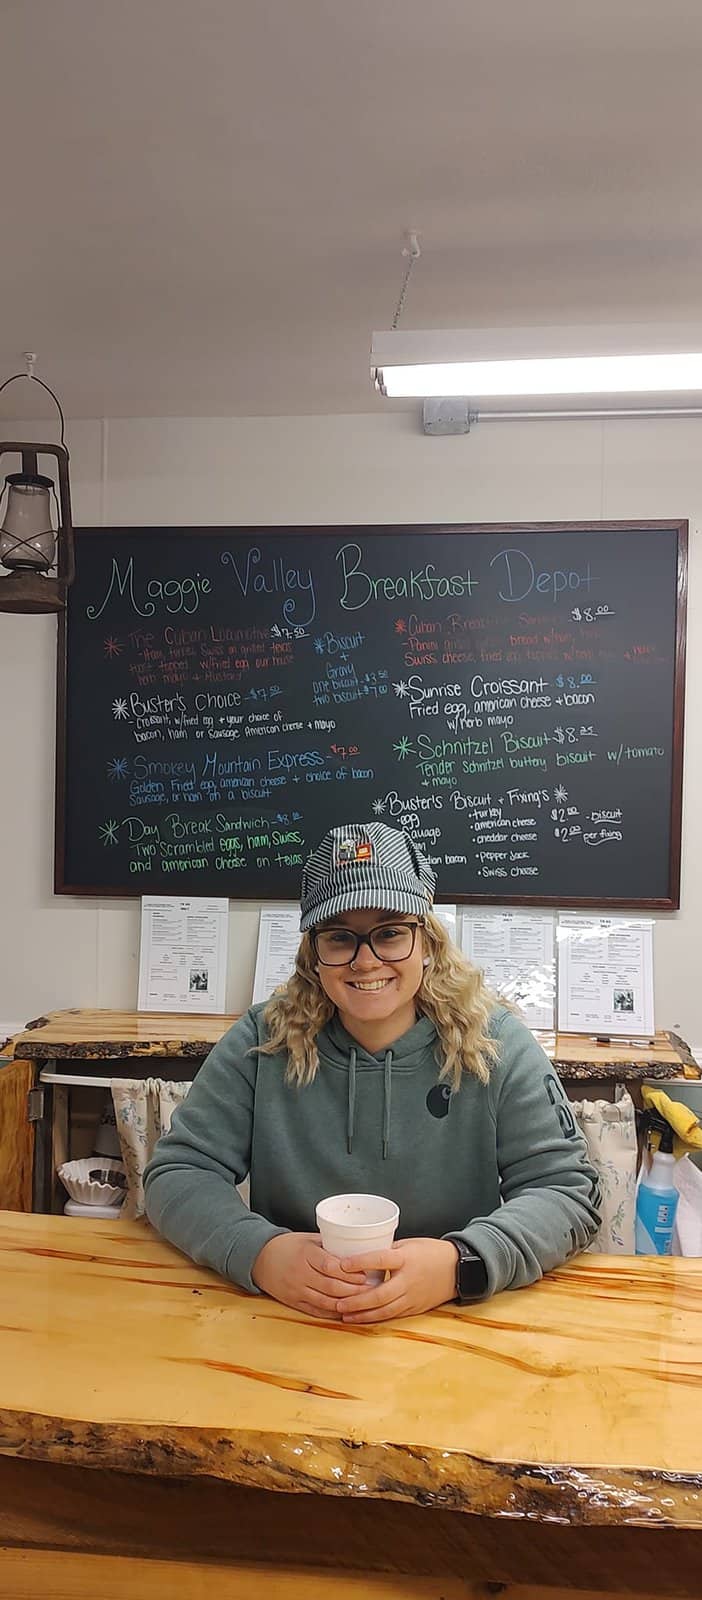 Maggie Valley Breakfast Depot
* The Cuban Locomotive $7.50
-Ham, turkey, Swiss on grilled texas
toast topped w/fried egg our house
herb mayo + Mustard
* Buster's Choice - $7.50
- Croissant, w/fried egg + your choice of
bacon, ham or Sausage American cheese + mayo
* Smokey Mountain Express - $7.00
Golden Fried egg, american cheese + choice of bacon
Sausage, or ham on a biscuit
* Day Break Sandwich - $8.
Two Scrambled eggs, ham, Swiss,
and american cheese on texas
* Biscuit
+
Gravy
one biscuit $3.50
two biscuit $7.00
* Cuban Breakfast $8.00
- Panini bread w/ham,
Swiss cheese, fried egg topped w/
* Sunrise Croissant $8.00
Fried egg, american cheese + bacon
w/herb mayo
* Schnitzel Biscuit - $8.25
Tender Schnitzel buttery biscuit w/tomato
+ mayo
* Buster's Biscuit + Fixing's *
• egg
bacon
• turkey
• american cheese
• cheddar cheese
• Pepper Jack
• Swiss cheese
$2.00 - biscuit
$2.00 per fixing